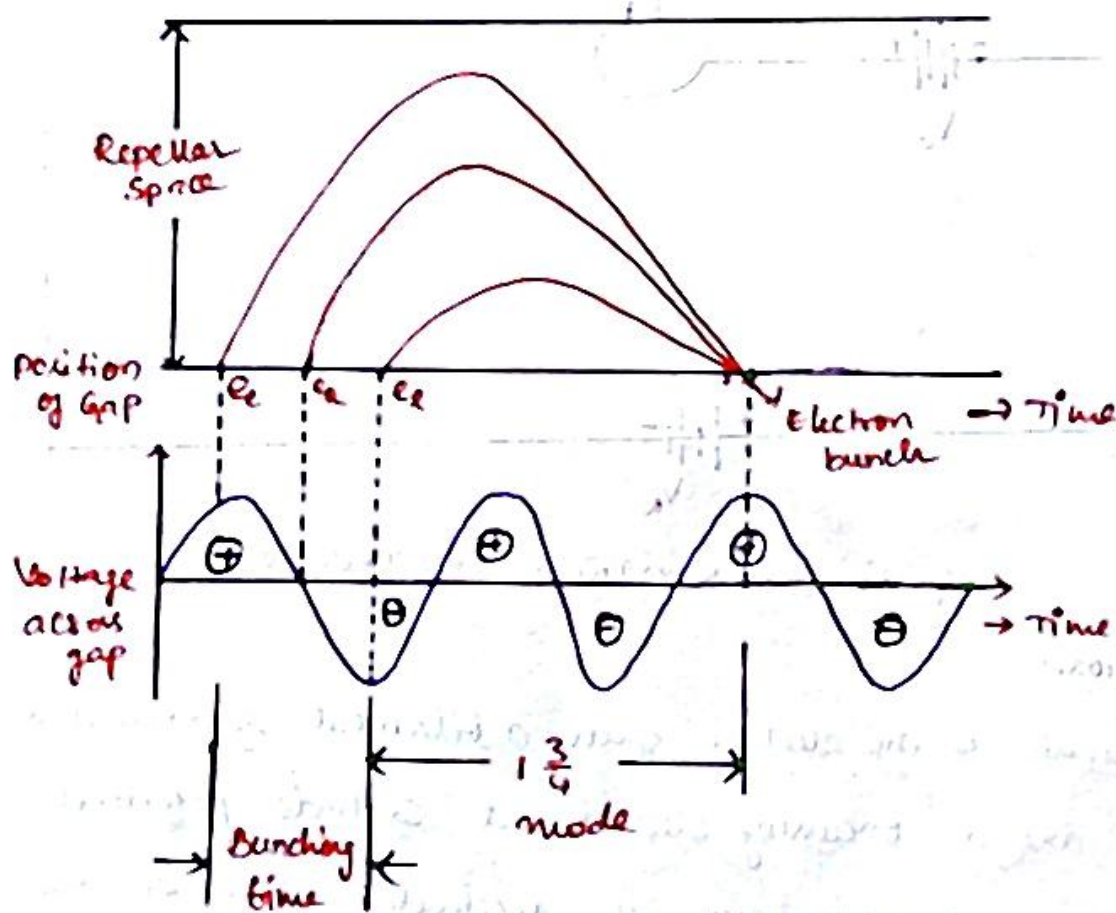 Repellar
Space
position
of Gap
ee
ea
el
→ Time
Electron
bunch
Voltage
across
gap
⊕
⊖
⊕
⊖
⊕
⊖
→ Time
1 3/4
mode
Bunching
time